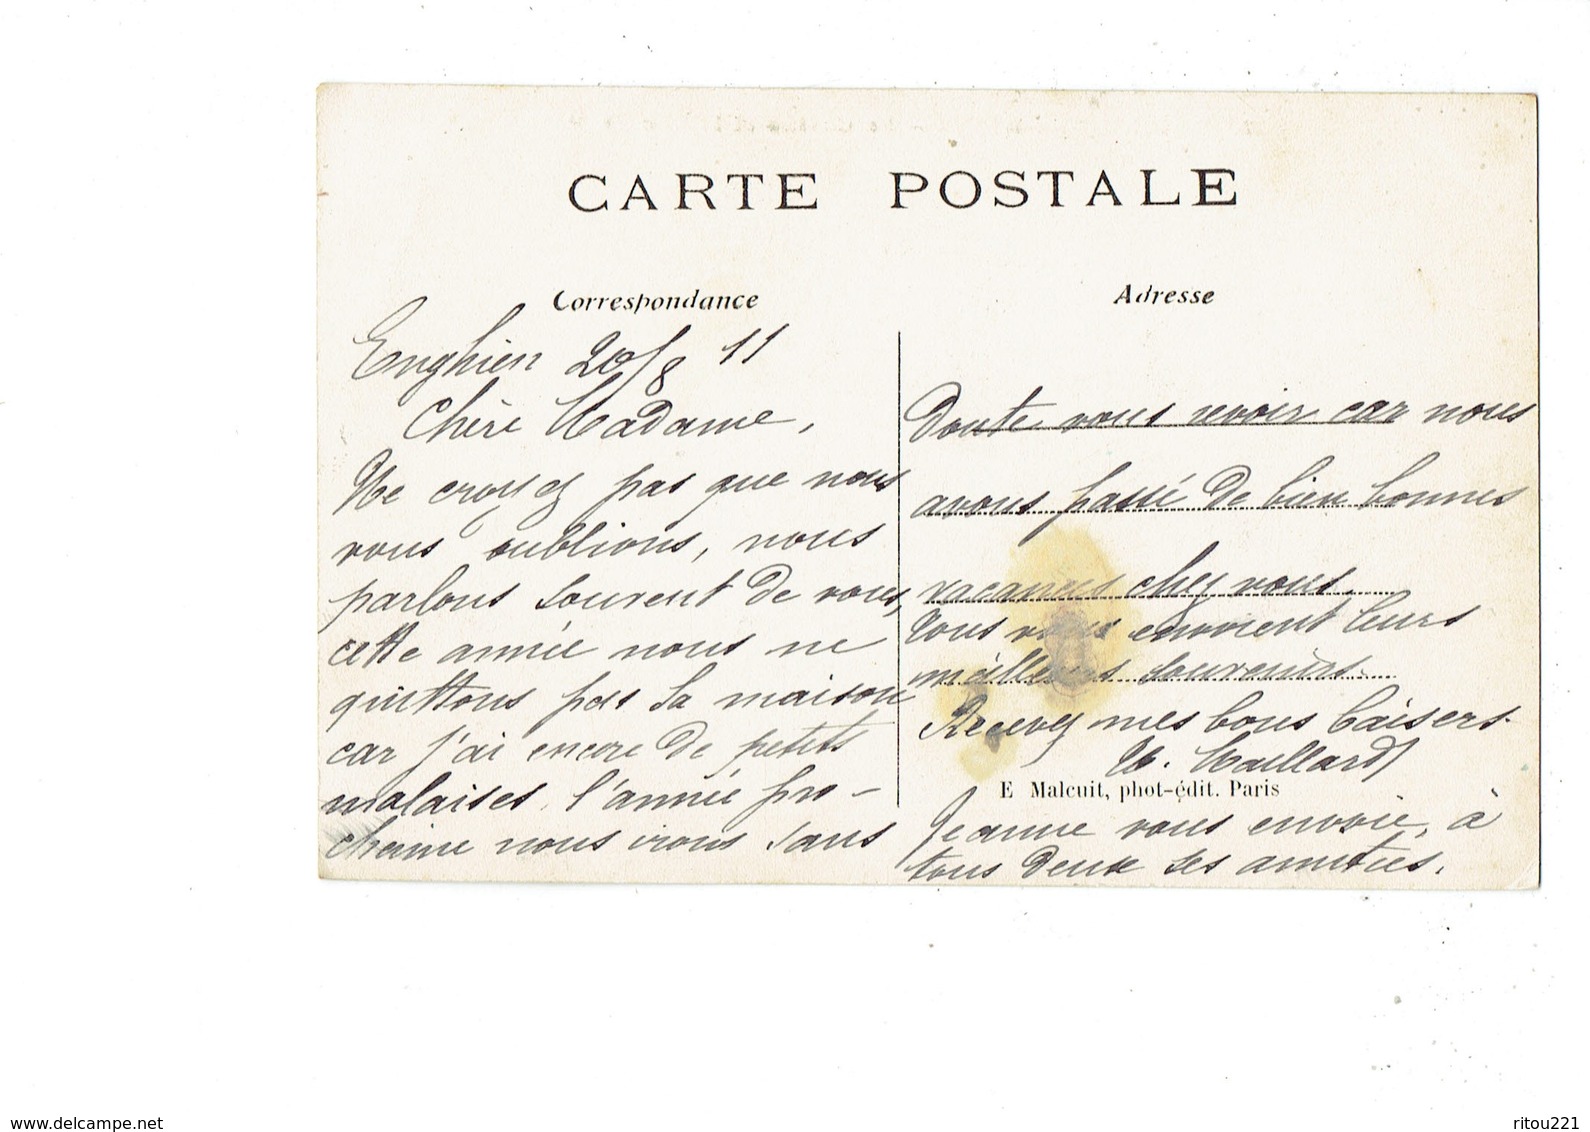 CARTE POSTALE
Correspondance
Enghien 20/8 11
Chère Madame,
Ne croyez pas que nous
vous oublions, nous
parlons souvent de vous,
cette année nous ne
quittons pas la maison
car j'ai encore de petits
malaises, l'année pro-
chaine nous irons sans
Adresse
doute vous revoir car nous
avons passé de bien bonnes
vacances chez vous.
Tous vous envoient leurs
meilleurs souvenirs.
Recevez mes bons baisers.
Maillard
E Malcuit, phot-édit. Paris
Jeanne vous envoie, à
tous deux ses amitiés.
www.delcampe.net
ritou221